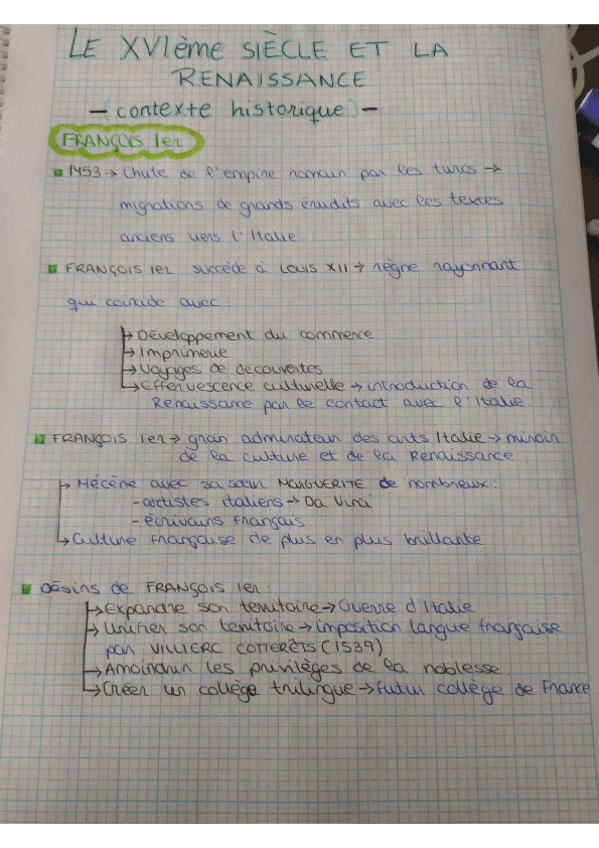 LE XVIème SIÈCLE ET LA
RENAISSANCE
- (contexte historique) -
FRANÇOIS 1er
1453 → Chute de l'empire romain par les turcs →
migrations de grands érudits avec les textes
anciens vers l'Italie
FRANÇOIS 1er succède à LOUIS XII → règne rayonnant
qui coincide avec:
→ Développement du commerce
→ Imprimerie
→ Voyages de découvertes
→ Effervescence culturelle → introduction de la
Renaissance par le contact avec l'Italie.
FRANÇOIS 1er → gran admirateur des arts Italie → miroir
de la culture et de la Renaissance
→ Mécène avec sa sœur MARGUERITE de nombreux:
- artistes italiens → Da Vinci
- écrivains français
→ Culture française de plus en plus brillante
Désirs de FRANÇOIS 1er:
→ Expandre son territoire → Guerre d'Italie
→ Unifier son territoire → imposition langue française
par VILLIERC COTTERÊTS (1539)
→ Amoindrir les privilèges de la noblesse.
→ Créer un collège trilingue → futur collège de France